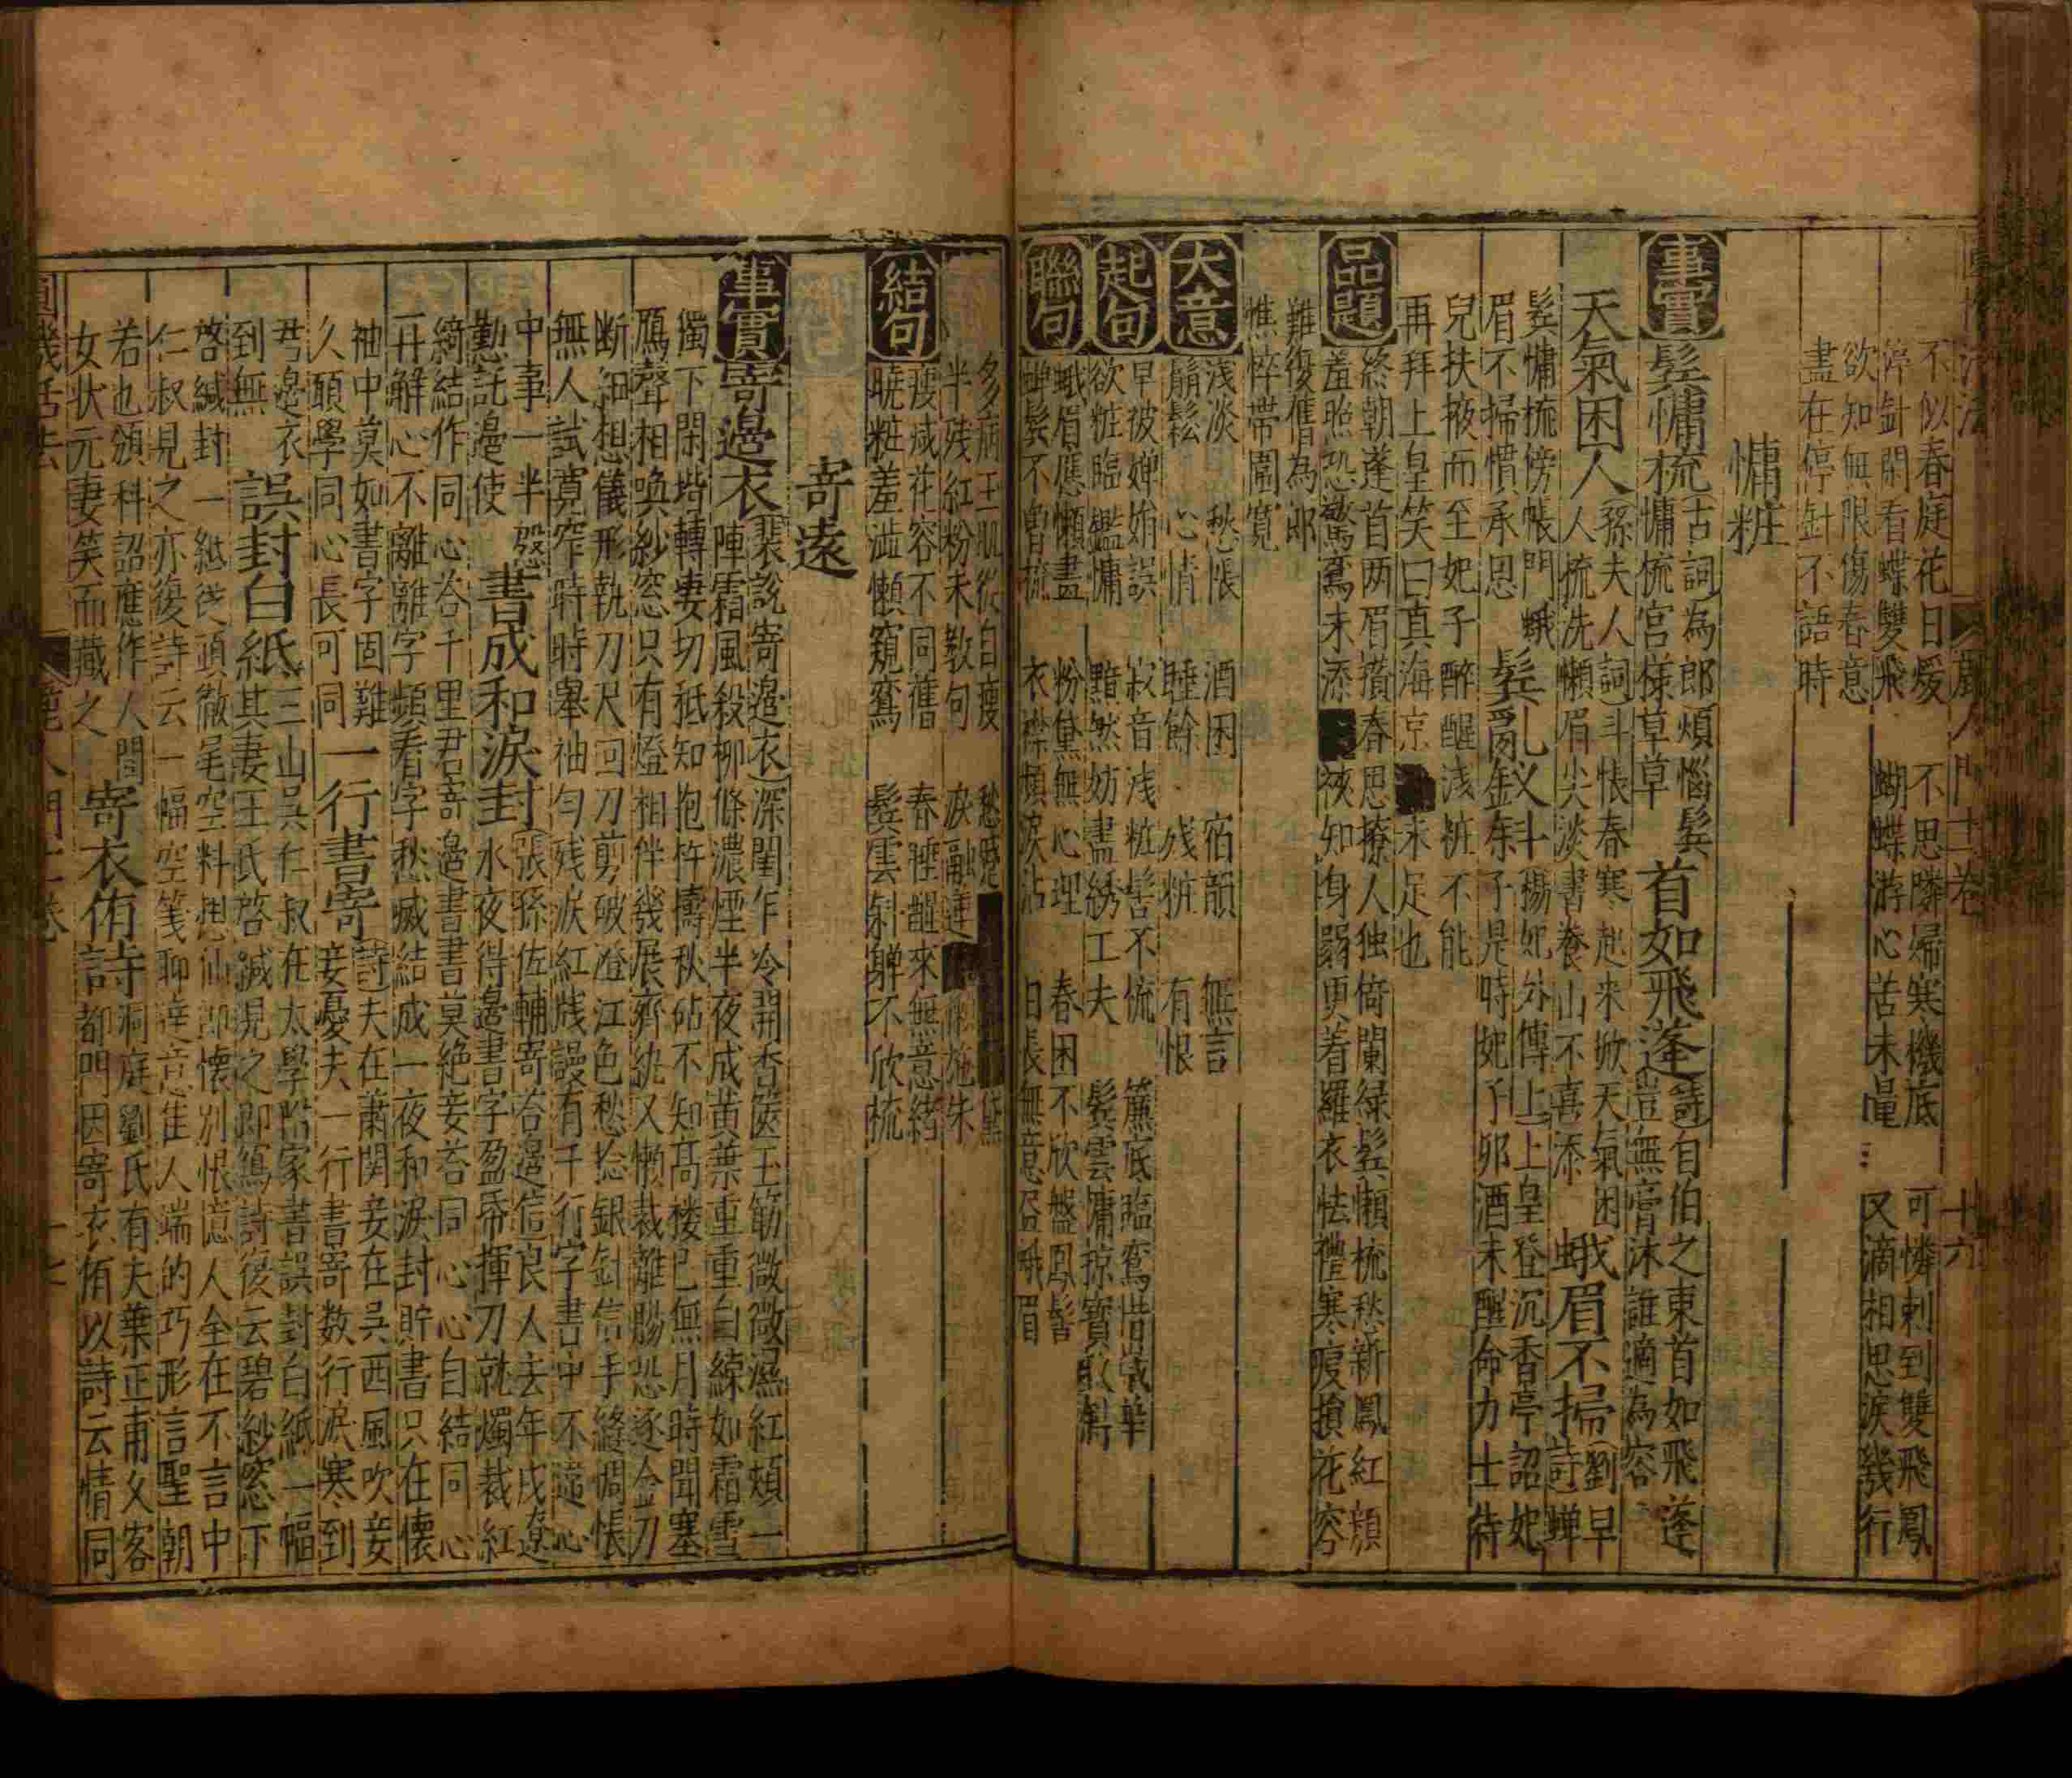 麗人門十二卷 十六
不似春庭花日煖 不思隣婦寒機底 可憐刺到雙飛鳳
停針閑看蝶雙飛 蝴蝶游心苦未 又滴相思淚幾行
欲知無限傷春意
盡在停針不語時
慵粧
事實 髮慵梳 古詞為郎煩惱髮
慵梳宮様草草 首如飛蓬 詩自伯之東首如飛蓬
豈無膏沐誰適為容
天氣困人 孫夫人詞斗帳春寒起来掀天氣困
人梳洗懶眉尖淡畵養山不喜添 蛾眉不掃 劉早
詩蝉
髮慵梳傍帳門蛾
眉不掃慣承恩 髮亂釵 楊妃外傳上上皇登沉香亭詔妃
子是時妃子卯酒未醒命力士待
兒扶掖而至妃子醉醒浅粧不能
再拜上皇笑曰真海 未足也
品題 終朝蓬首两眉攢春思撩人独倚闌緑髮懶梳愁新鳳紅顔
羞照恐驚鸞未添 被知身弱更着羅衣怯禮寒痩損花容
難復舊為郎
憔悴帶圍寬
大意 浅淡 愁悵 酒困 宿韻 無言
鬅鬆 心情 睡餘 残粧 有恨
起句 早被嬋娟誤 寂音浅粧髻不梳 簾底臨鸞惜歳華
欲粧臨鑑慵 黯然妨盡綉工夫 髮雲慵掠寳釵斜
聯句 蛾眉應懶畫 粉黛無心理 春困不欣盤鳳髻
蝉髮不曽梳 衣襟頻淚沾 日長無意 蛾眉
多病玉肌従白痩 愁 黛
半残紅粉未教匀 淚融 施朱
結句 痩减花容不同舊 春睡醒來無意緒
曉粧羞澁懶窺鸞 髮雲斜軃不欣梳
寄遠
事實 寄邉衣 裴説寄邉衣深閨乍冷開香篋玉筯微微濕紅頰一
陣霜風殺柳條濃煙半夜成黄葉重重白練如霜雪
獨下閑堦轉妻切秪知抱杵擣秋砧不知髙楼已無月時聞塞
鴈聲相喚紗窓只有燈相伴幾展齊紈又懶裁離膓恐逐金刀
断細想儀形執刀尺回刀剪破澄江色愁捻銀針信手縫惆悵
無人試寛窄時時舉袖匀残淚紅牋謾有千行字書中不盡心
中事一半殷
勤託邉使 書成和淚封 張孫佐輔寄荅邉信良人去年戍遼
水夜待邉書字盈帋揮刀就燭裁紅
綺結作同心荅千里君寄邉書書莫絶妾荅同心心自結同心
再解心不離離字頻看字愁滅結成一夜和淚封貯書只在懐
袖中莫如書字固難
久願學同心長可同 一行書寄 詩夫在蕭関妾在吳西風吹妾
妾憂夫一行書寄数行淚寒到
君邉衣
到無 誤封白紙 三山吳仁叔在太學附家書誤封白紙一幅
其妻王氏啓緘見之即寫詩復云碧紗窓下
啓緘封一紙従頭徹尾空料想仙郎懐别恨憶人全在不言中
仁叔見之亦復詩云一幅空箋聊達意佳人端的巧形言聖朝
若也頒科詔應作人間
女状元妻笑而藏之 寄衣侑詩 洞庭劉氏有夫葉正甫久客
都門因寄衣侑以詩云情同
圓機活法 麗人門十二卷 十七